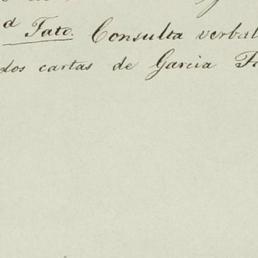 d Tato. Consulta verbal
dos cartas de Garcia